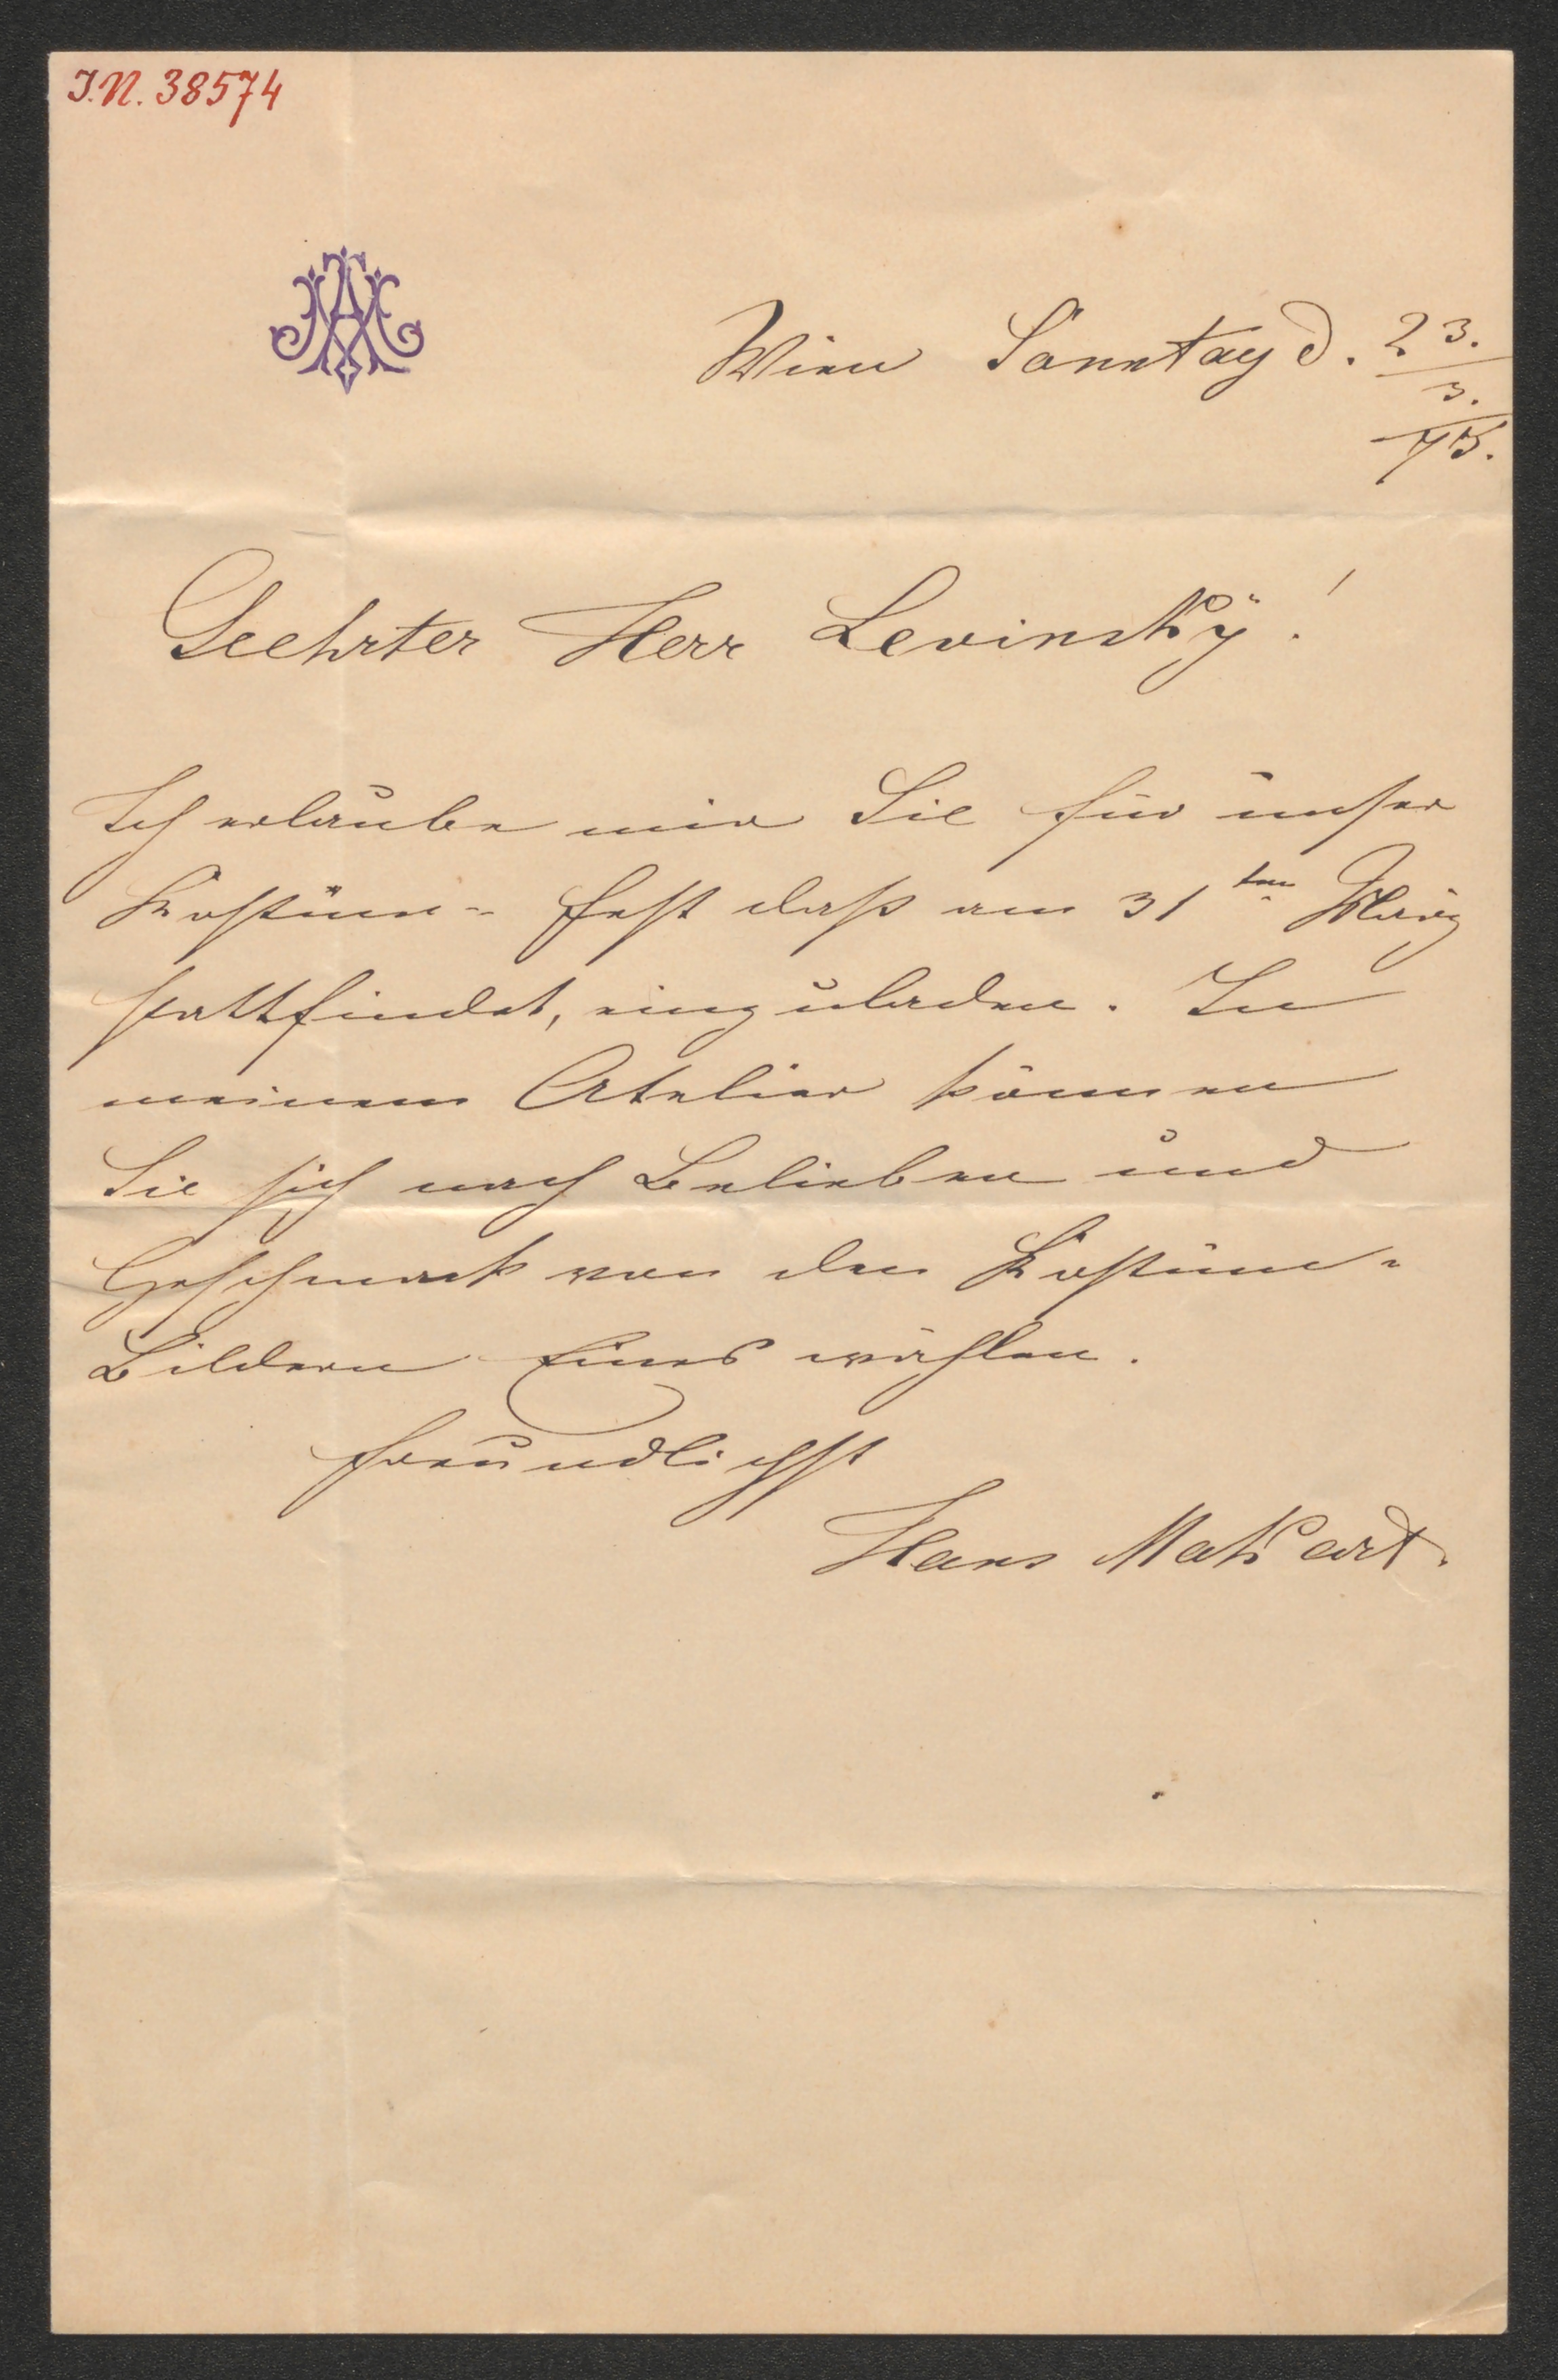 I.N. 38574
Wien Sonntag d. 23.
3.
75.
Geehrter Herr Levinsky!
Ich erlaube mir Sie für unser
Kostüm- Fest daß am 31ten März
stattfindet, einzuladen. In
meinem Atelier können
Sie sich nach Belieben und
Geschmack von den Kostüm-
Bildern Eines wählen.
freundlichst
Hans Makart.